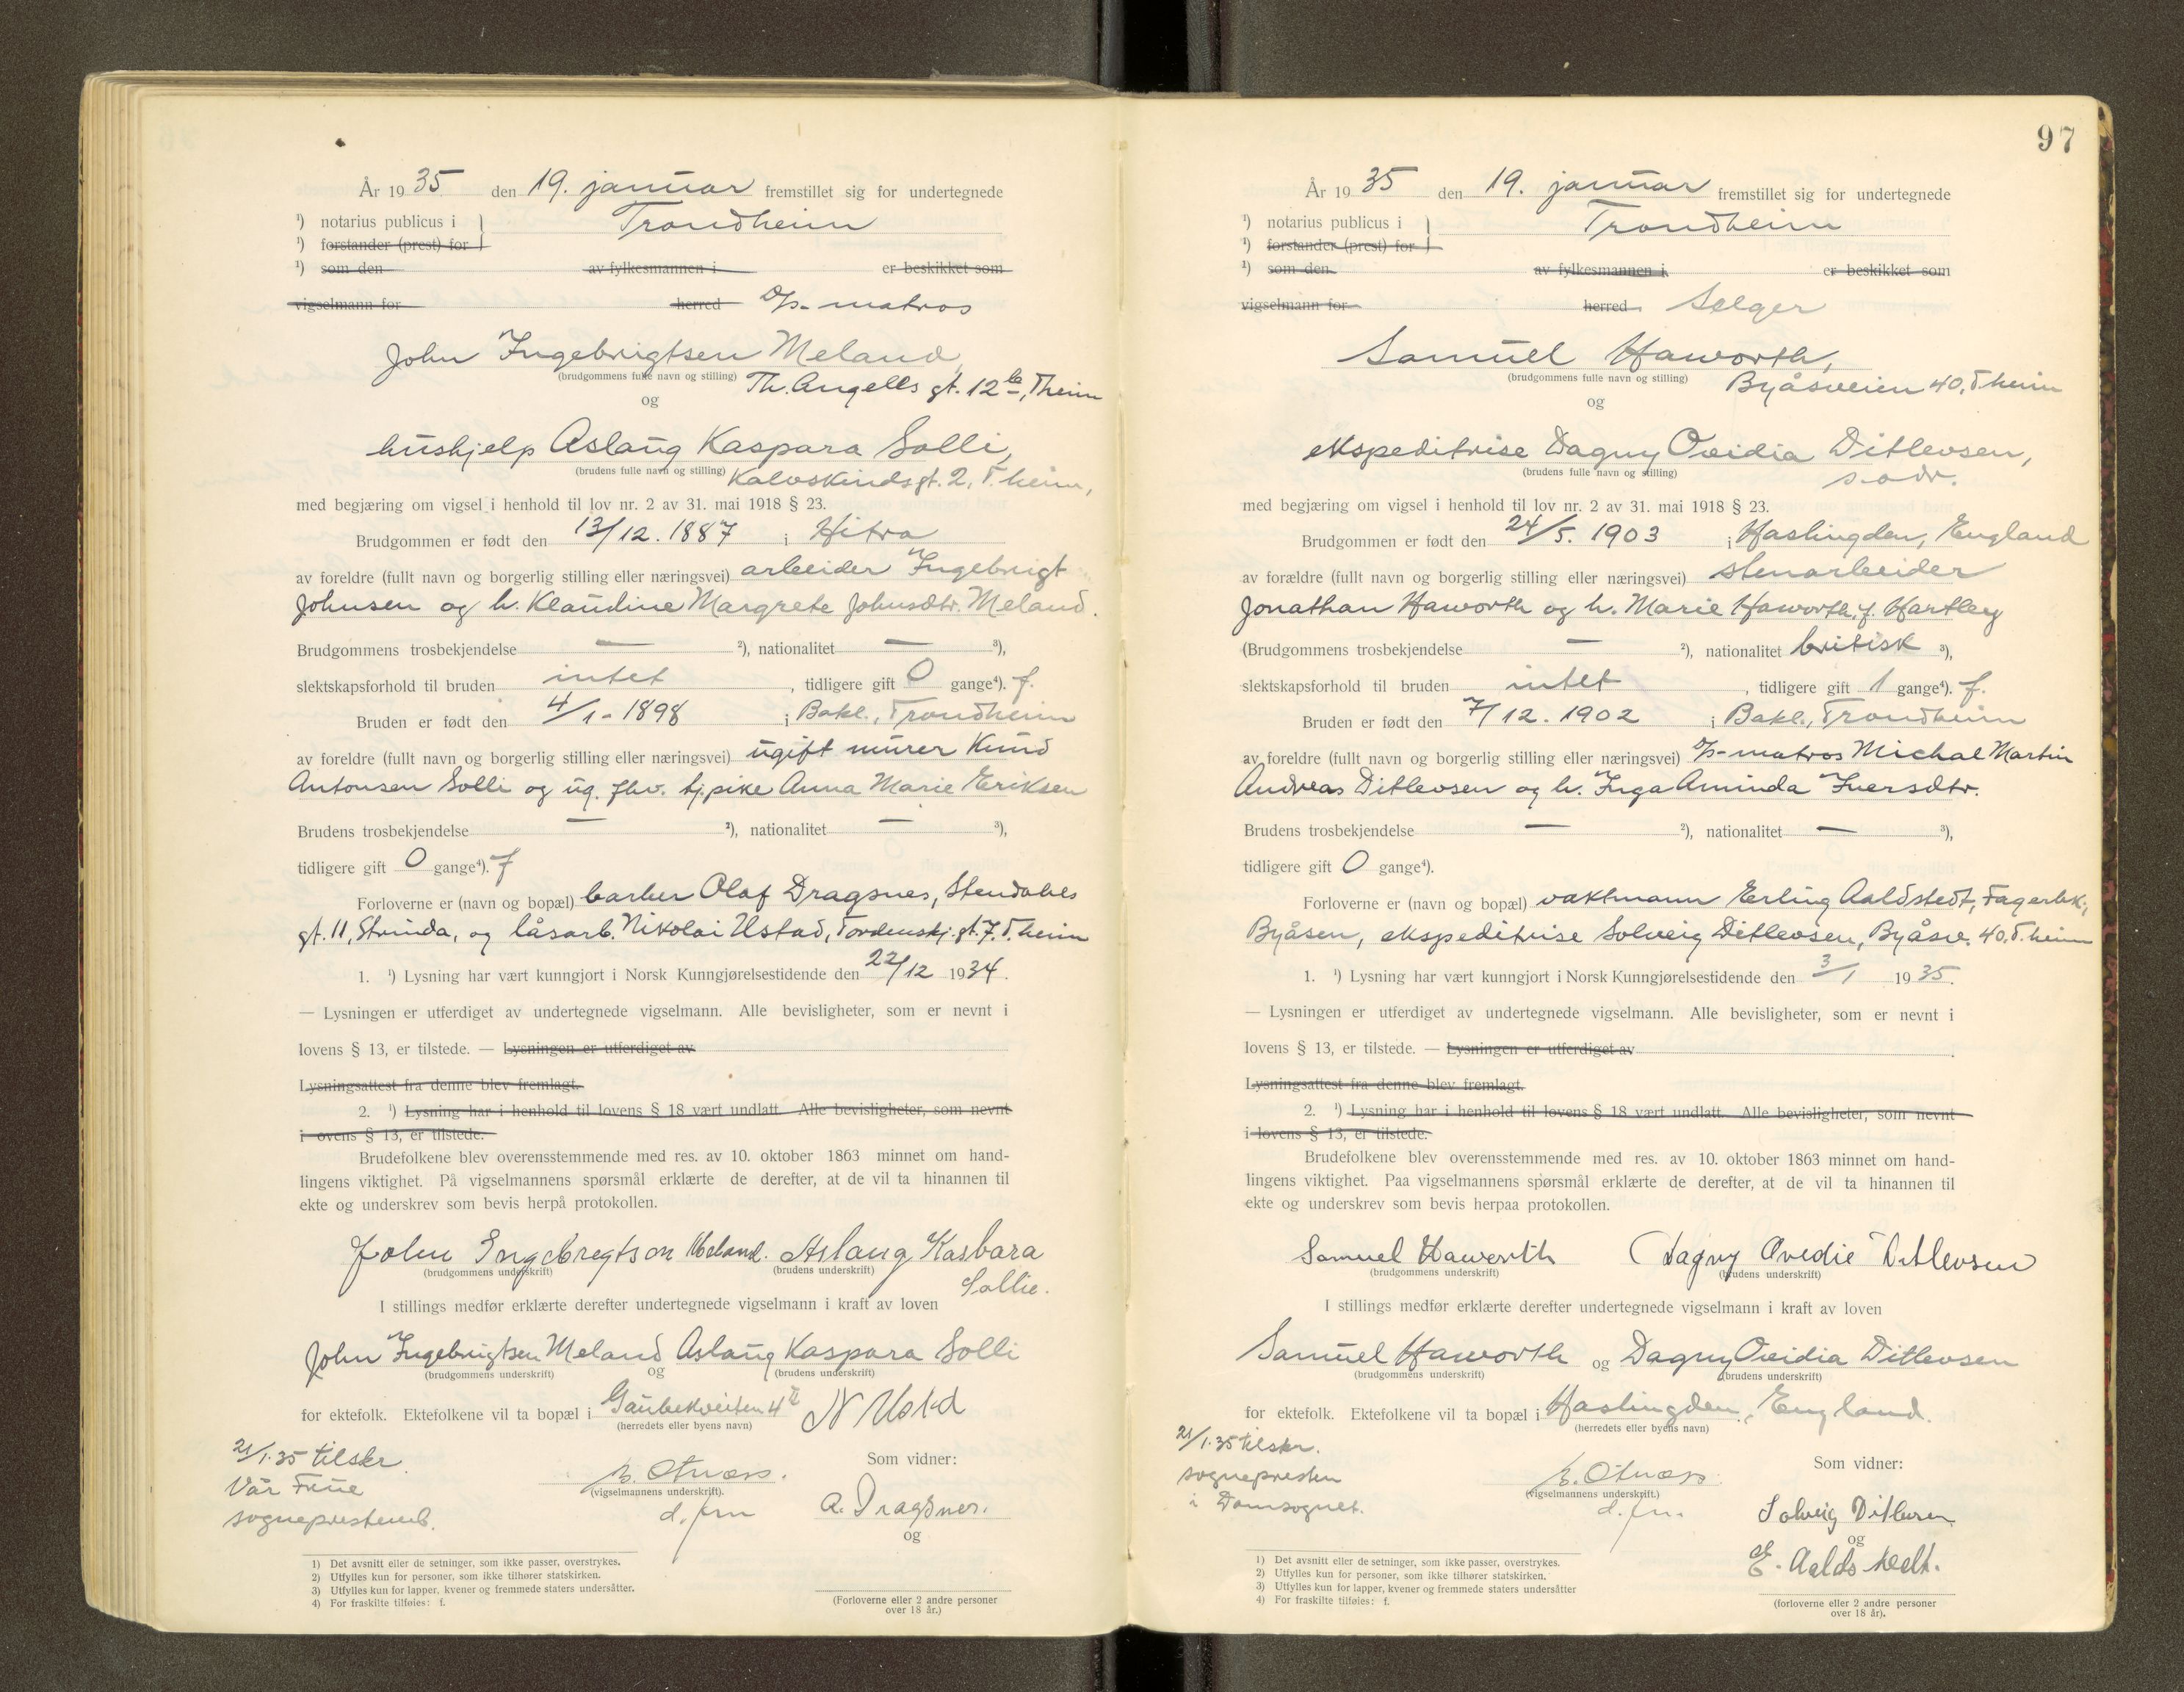 År 19 35 den 19. januar fremstillet sig for undertegnede
¹) notarius publicus i Trondheim
¹) forstander (prest) for
¹) som den av fylkesmannen i er beskikket som
vigselmann for herred D/s-matros
John Ingebrigtsen Meland,
(brudgommens fulle navn og stilling) Th. Angells gt. 12 b, Theim
og
hushjelp Aslaug Kaspara Solli,
(brudens fulle navn og stilling) Kalvskindsgt. 2, T.heim,
med begjæring om vigsel i henhold til lov nr. 2 av 31. mai 1918 § 23.
Brudgommen er født den 13/12. 1887 i Hitra
av foreldre (fullt navn og borgerlig stilling eller næringsvei) arbeider Ingebrigt
Johnsen og h. Klaudine Margrete Johnsdtr. Meland.
Brudgommens trosbekjendelse — ²), nationalitet — ³),
slektskapsforhold til bruden intet, tidligere gift 0 gange⁴). f.
Bruden er født den 4/1- 1898 i Bakl., Trondheim
av foreldre (fullt navn og borgerlig stilling eller næringsvei) ugift murer Knud
Antonsen Solli og ug. fhv. tj.pike Anna Marie Eriksen
Brudens trosbekjendelse — ²), nationalitet — ³),
tidligere gift 0 gange⁴). f
Forloverne er (navn og bopæl) barber Olaf Dragsnes, Stendahls
gt. 11, Strinda, og låsarb. Nikolai Ustad, Tordenskj. gt. 7. T.heim
1. ¹) Lysning har vært kunngjort i Norsk Kunngjørelsestidende den 22/12 1934.
— Lysningen er utferdiget av undertegnede vigselmann. Alle bevisligheter, som er nevnt i
lovens § 13, er tilstede. — Lysningen er utferdiget av
Lysningsattest fra denne blev fremlagt.
2. ¹) Lysning har i henhold til lovens § 18 vært undlatt. Alle bevisligheter, som nevnt
i ovens § 13, er tilstede.
Brudefolkene blev overensstemmende med res. av 10. oktober 1863 minnet om hand-
lingens viktighet. På vigselmannens spørsmål erklærte de derefter, at de vil ta hinannen til
ekte og underskrev som bevis herpå protokollen.
John Ingebregtson Meland. Aslaug Kasbara
(brudgommens underskrift) (brudens underskrift)
Sollie.
I stillings medfør erklærte derefter undertegnede vigselmann i kraft av loven
John Ingebrigtsen Meland og Aslaug Kaspara Solli
(brudgommens underskrift) (brudens underskrift)
for ektefolk. Ektefolkene vil ta bopæl i Gaubekveiten 4 N Ustad
(herredets eller byens navn)
21/1.35 tilskr. Som vidner:
Vår Frue
sogneprestemb.
(vigselmannens underskrift).
d. fm
A. Dragsnes.
og
1) Det avsnitt eller de setninger, som ikke passer, overstrykes.
2) Utfylles kun for personer, som ikke tilhører statskirken.
3) Utfylles kun for lapper, kvener og fremmede staters undersåtter.
4) For fraskilte tilføies: f.
(Forloverne eller 2 andre personer
over 18 år.)
97
År 19 35 den 19. januar fremstillet sig for undertegnede
¹) notarius publicus i Trondheim
¹) forstander (prest) for
¹) som den av fylkesmannen i er beskikket som
vigselmann for herred Selger
Samuel Haworth,
(brudgommens fulle navn og stilling) Byåsveien 40, T.heim
og
ekspeditrise Dagny Ovidia Ditlevsen,
(brudens fulle navn og stilling) s. adr.
med begjæring om vigsel i henhold til lov nr. 2 av 31. mai 1918 § 23.
Brudgommen er født den 24/5. 1903 i Haslingden, England
av forældre (fullt navn og borgerlig stilling eller næringsvei) stenarbeider
Jonathan Haworth og h. Marie Haworth, f. Hartley
(Brudgommens trosbekjendelse — ²), nationalitet britisk ³),
slektskapsforhold til bruden intet, tidligere gift 1 gange⁴). f.
Bruden er født den 7/12. 1902 i Bakl., Trondheim
av foreldre (fullt navn og borgerlig stilling eller næringsvei) D/s-matros Michal Martin
Andreas Ditlevsen og h. Inga Aminda Iversdtr.
Brudens trosbekjendelse — ²), nationalitet — ³),
tidligere gift 0 gange⁴).
Forloverne er (navn og bopæl) vaktmann Erling Aaldstedt, Fagerbk.,
Byåsen, ekspeditrise Solveig Ditlevsen, Byåsv. 40. T.heim
1. ¹) Lysning har vært kunngjort i Norsk Kunngjørelsestidende den 3/1 1935.
— Lysningen er utferdiget av undertegnede vigselmann. Alle bevisligheter, som er nevnt i
lovens § 13, er tilstede. — Lysningen er utferdiget av
Lysningsattest fra denne blev fremlagt.
2. ¹) Lysning har i henhold til lovens § 18 vært undlatt. Alle bevisligheter, som nevnt
i lovens § 13, er tilstede.
Brudefolkene blev overensstemmende med res. av 10. oktober 1863 minnet om hand-
lingens viktighet. Paa vigselmannens spørsmål erklærte de derefter, at de vil ta hinannen til
ekte og underskrev som bevis herpaa protokollen.
Samuel Haworth Dagny Ovedie Ditlevsen
(brudgommens underskrift) (brudens underskrift)
I stillings medfør erklærte derefter undertegnede vigselmann i kraft av loven
Samuel Haworth og Dagny Ovidia Ditlevsen
(brudgommens underskrift) (brudens underskrift)
for ektefolk. Ektefolkene vil ta bopæl i Haslingden, England.
(herredets eller byens navn)
21/1.35 tilskr.
sognepresten
i Domsognet.
Som vidner:
(vigselmannens underskrift.)
d. fm.
Solveig Ditlevsen
og
E. Aaldstedt.
1) Det avsnitt eller de setninger, som ikke passer, overstrykes.
2) Utfylles kun for personer, som ikke tilhører statskirken.
3) Utfylles kun for lapper, kvener og fremmede staters undersåtter
4) For fraskilte tilføies: f.
(forloverne eller 2 andre personer
over 18 år).